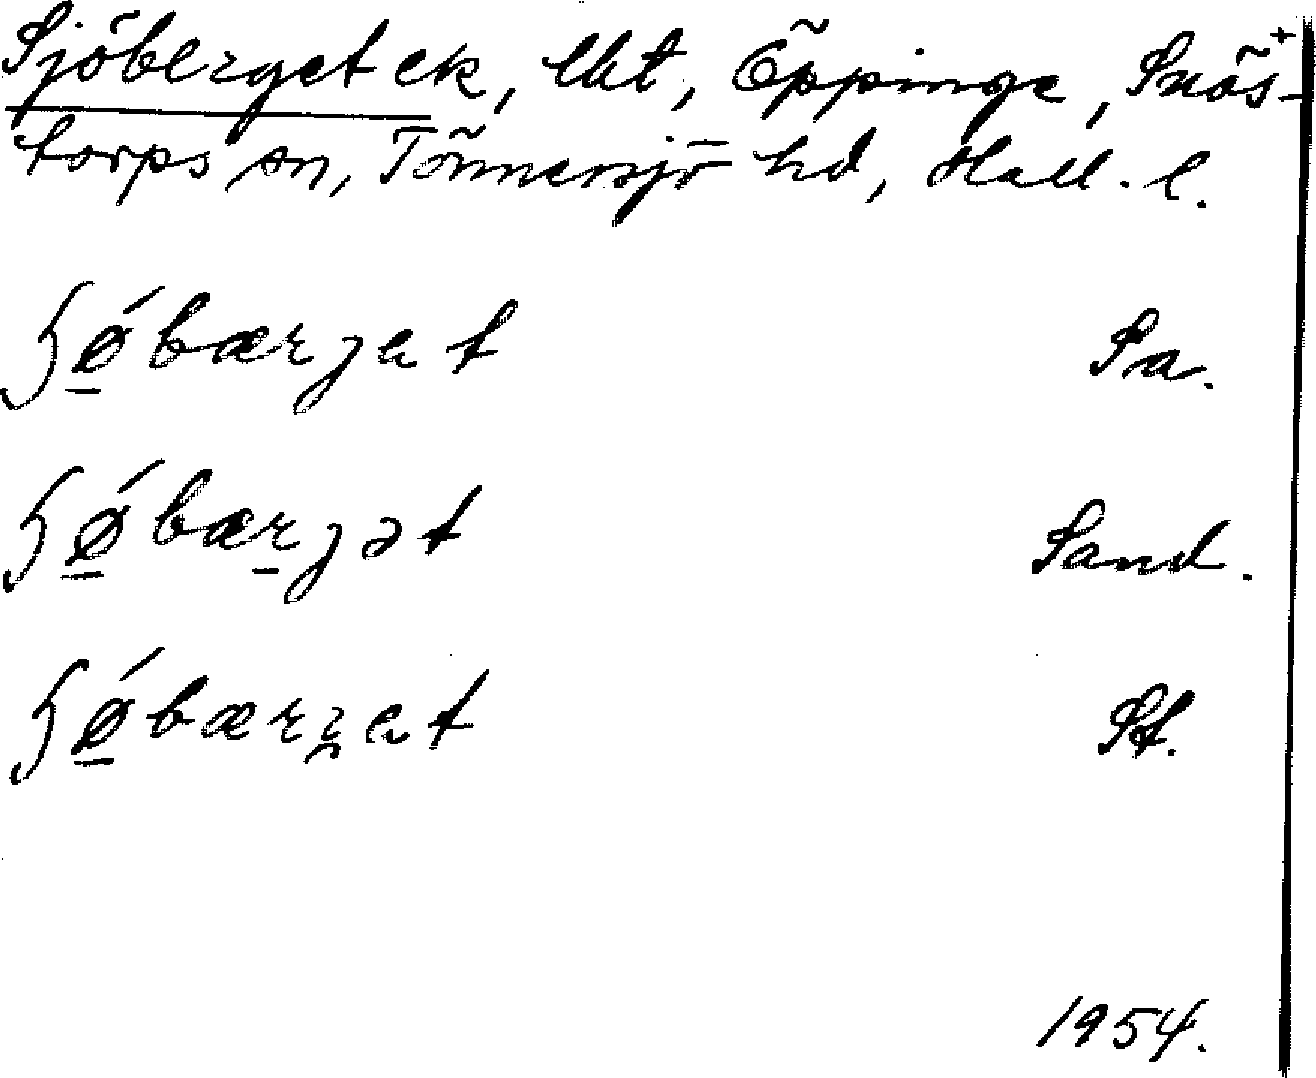 Sjöberget ek, lht, Öppinge, Snös-
torps sn, Tönnersjö hd, Hall. l.
ɧǿ̲bærjet Sa.
ɧǿ̲bær̲jət Sand.
ɧǿ̲bær et St.
1954.